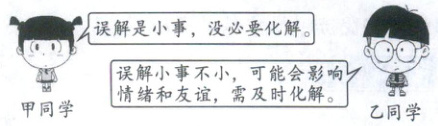 误解是小事，没必要化解。
误解小事不小，可能会影响
情绪和友谊，需及时化解。
甲同学
乙同学